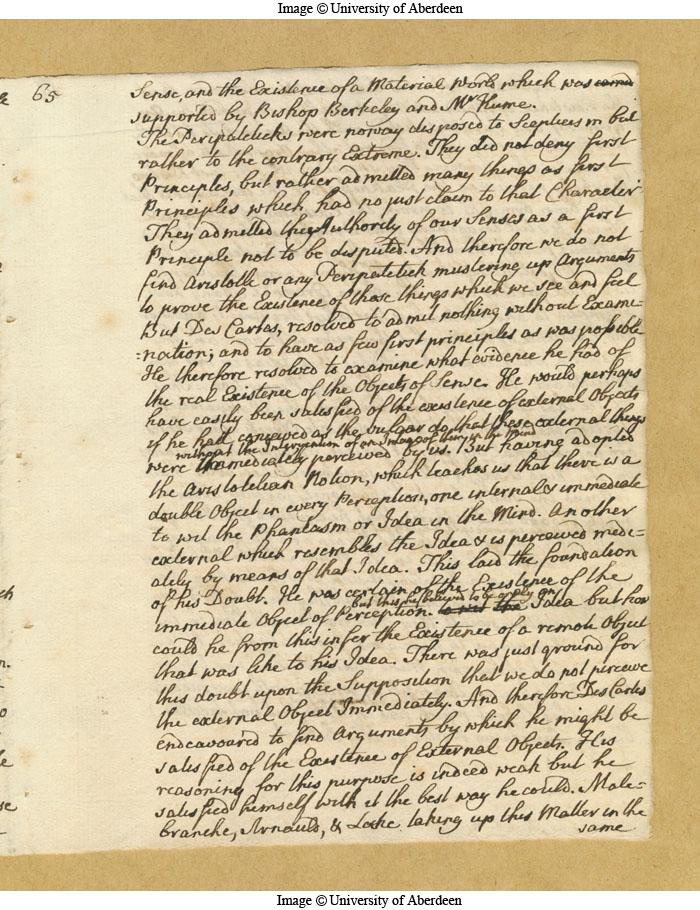 Image © University of Aberdeen
65
Sense, and the Existence of a Material World which was
supported by Bishop Berkeley and Mr Hume.
The Peripateticks were noway disposed to Scepticism but
rather to the contrary Extreme. They did not deny first
Principles, but rather admitted many things as first
Principles which had no just claim to that Character
They admitted the Authority of our Senses as a first
Principle not to be disputed. And therefore we do not
find Aristotle or any Peripatetick mustering up Arguments
to prove the Existence of those things which we see and feel
But Des Cartes, resolved to admit nothing without Exami=
=nation; and to have as few first principles as was possible
He therefore resolved to examine what evidence he had of
the real Existence of the Objects of Sense. He would perhaps
have easily been satisfied of the existence of external Objects
if he had conceived as the vulgar do that these external things
without the Intervention of an Image of them in the Mind
were immediately perceived by us. But having adopted
the Aristotelian Notion, which teaches us that there is a
double Object in every Perception, one internal & immediate
to wit the Phantasm or Idea in the Mind. Another
external which resembles the Idea & is perceived medi=
ately by means of that Idea. This laid the foundation
of his Doubt. He was certain of the Existence of the
but this he believed to be only an
immediate Object of Perception. to wit the Idea but how
could he from this infer the Existence of a remote Object
that was like to his Idea. There was just ground for
this doubt upon the Supposition that we do not perceive
the external Object Immediately. And therefore Des Cartes
endeavoured to find Arguments by which he might be
satisfied of the Existence of External Objects. His
reasoning for this purpose is indeed weak but he
satisfied himself with it the best way he could. Male=
branche, Arnauld, & Locke taking up this Matter in the
same
Image © University of Aberdeen